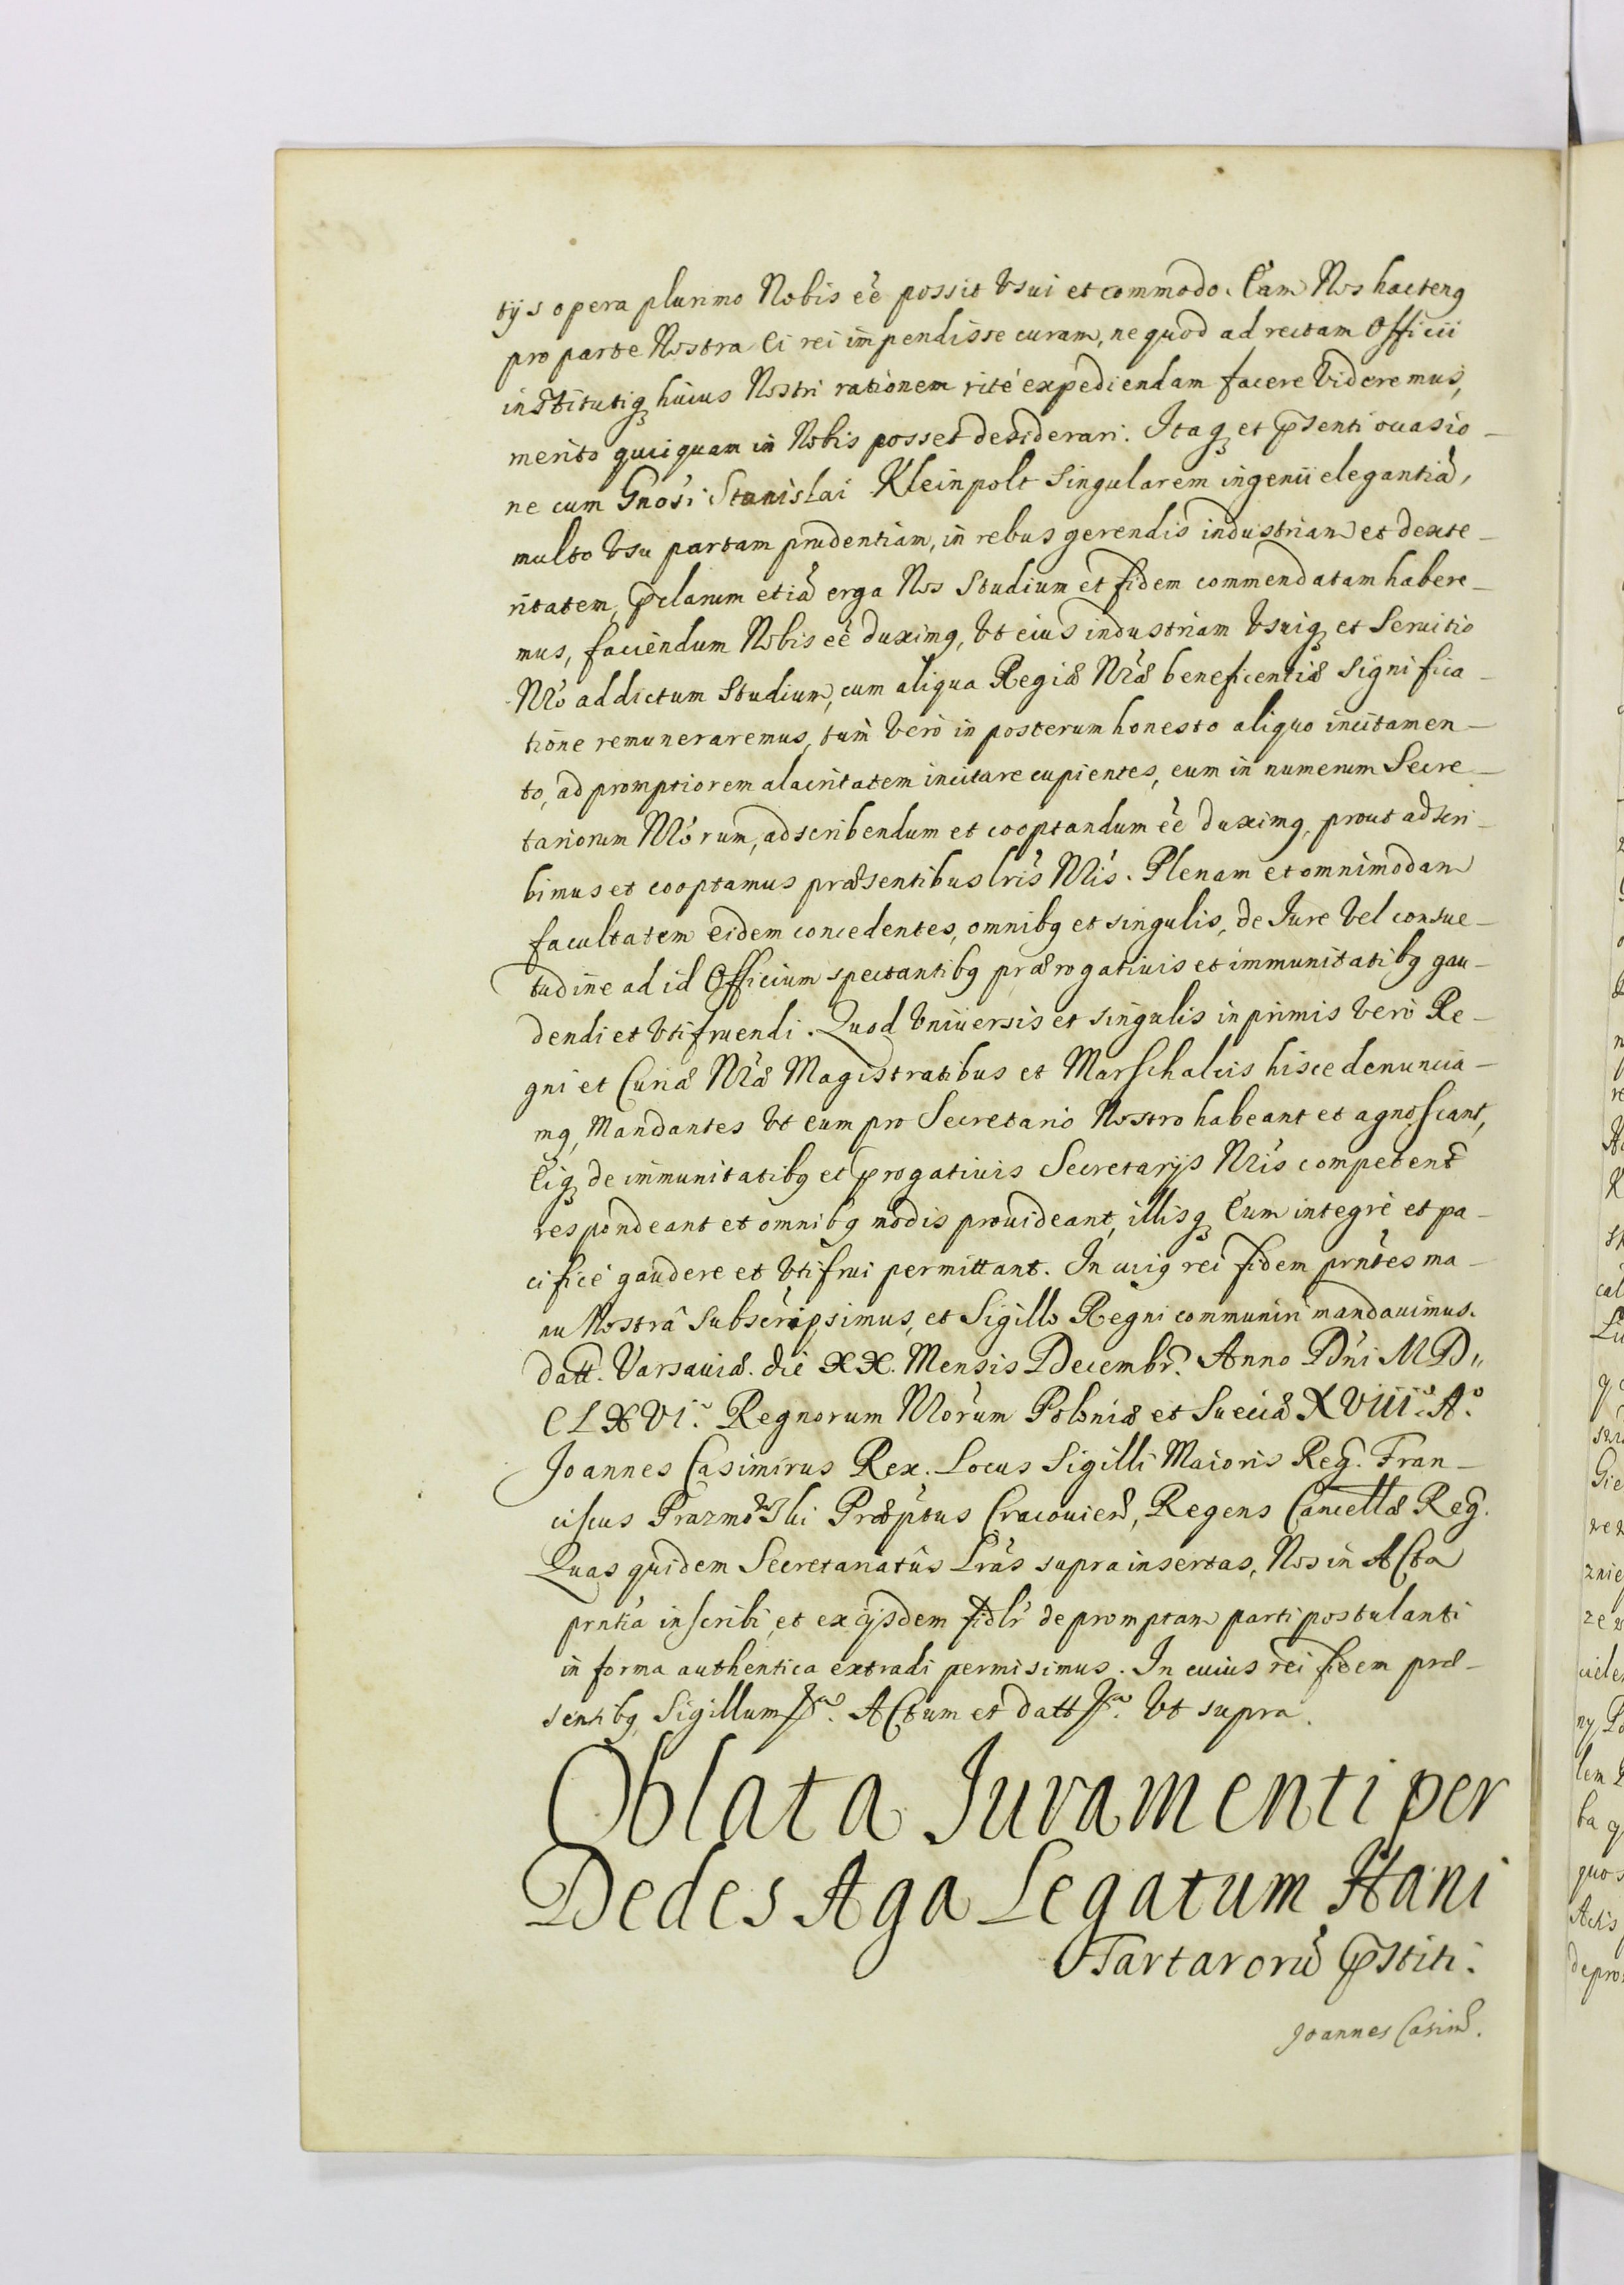 tijs opera plurimo Nobis eẽ possit Vsui et commodo. Eam Nos hacteng
pro parte Nostra Ei rei impendisse curam, ne quod ad rectam Officii
institutiq huius Nostri rationem rité expediendam facere Videremus,
merito quicquam in Nobis posset desiderari. Itaq et pr̃senti occasio-
ne cum Gnosi Stanislai Kleinpolt Singularem ingenii elegantiã,
multo Vsu partam prudentiam, in rebus gerendis industriam et dexte-
ritatem, pr̃clarum etiã erga Nos Studium et fidem commendatam habere-
mus, faciendum Nobis eẽ duximg, Vt eius industriam Vsuiq et Seruitio
Nr̃o addictum Studium, cum aliqua Regiæ Nr̃æ beneficentiæ Significa-
tione remuneraremus, tum Verò in posterum honesto aliquo incitamen-
to, ad promptiorem alacritatem incitare cupientes, eum in numerum Secre-
tariorum Nr̃orum, adscribendum et cooptandum eẽ duximg, prout adscri-
bimus et cooptamus præsentibus lr̃is Nr̃is. Plenam et omnimodam
facultatem eidem concedentes, omnibg et singulis, de Iure Vel consue-
tudine ad id Officium spectantibg prærogatiuis et immunitatibg gau-
dendi et Vtifruendi. Quod Vniuersis et singulis inprimis Verò Re-
gni et Curiæ Nr̃æ Magistratibus et Marschalcis hisce denuncia-
mg, Mandantes Vt eum pro Secretario Nostro habeant et agnoscant,
Eiq de immunitatibg et pr̃rogatiuis Secretarijs Nr̃is competent̃
respondeant et omnibg modis prouideant, illisq Eum integrè et pa-
cificè gaudere et Vtifrui permittant. In cuig rei fidem prñtes ma-
nu Nostrâ Subscripsimus, et Sigillo Regni communiri mandauimus.
datt. Varsauiæ. die XX. Mensis Decembr̃. Anno Dñi MD„
CLXVI.° Regnorum Nr̃orum Poloniæ et Sueciæ XVIII.° A.°
Joannes Casimirus Rex. Locus Sigilli Maioris Reg. Fran-
ciscus Prazmowski Præptus Cracouien̄, Regens Cancellæ Reg.
Quas quidem Secretariatûs Lr̃as supra insertas, Nos in ACta
prñtia inscribi, et ex ijsdem fidlr̃ depromptam parti postulanti
in forma authentica extradi permisimus. In cuius rei fidem præ-
sentibg Sigillum &. ACtum et datt &. Vt supra.
Oblata Juramenti per
Dedes Aga Legatum Hani
Tartarorũ pr̃stiti.
Joannes Casim̃.